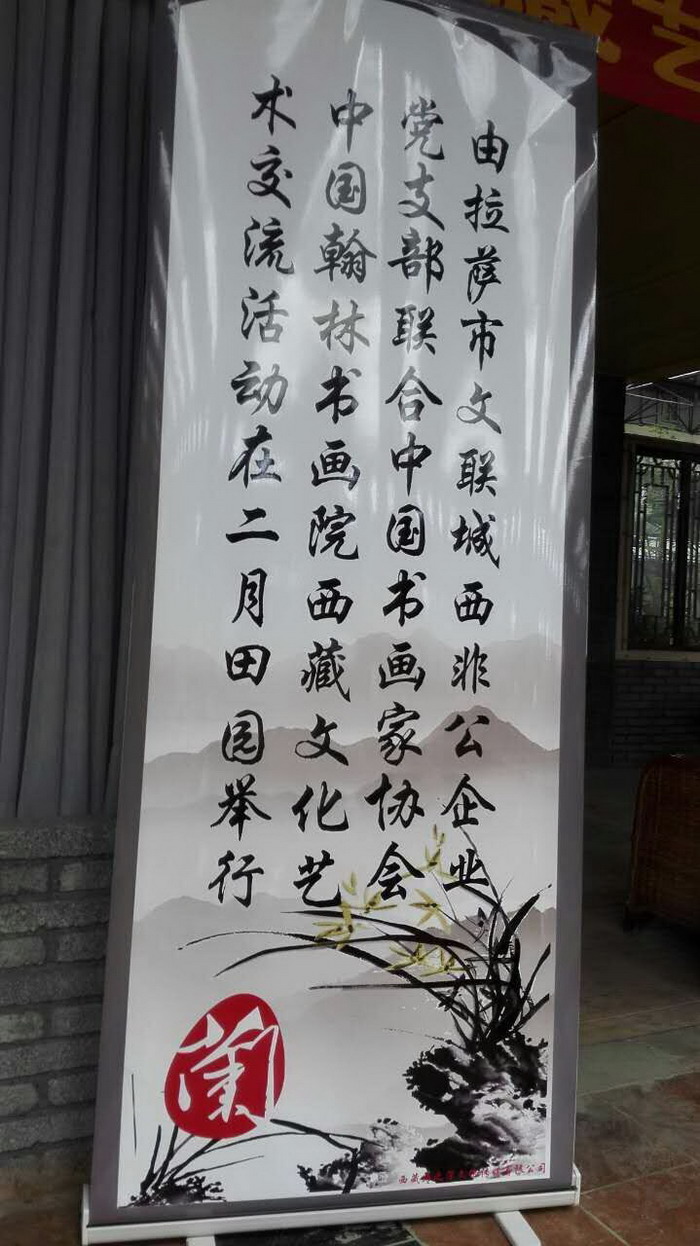 由拉萨市文联城西非公企业
党支部联合中国书画家协会
中国翰林书画院西藏文化艺
术交流活动在二月田园举行
兰
藏艺